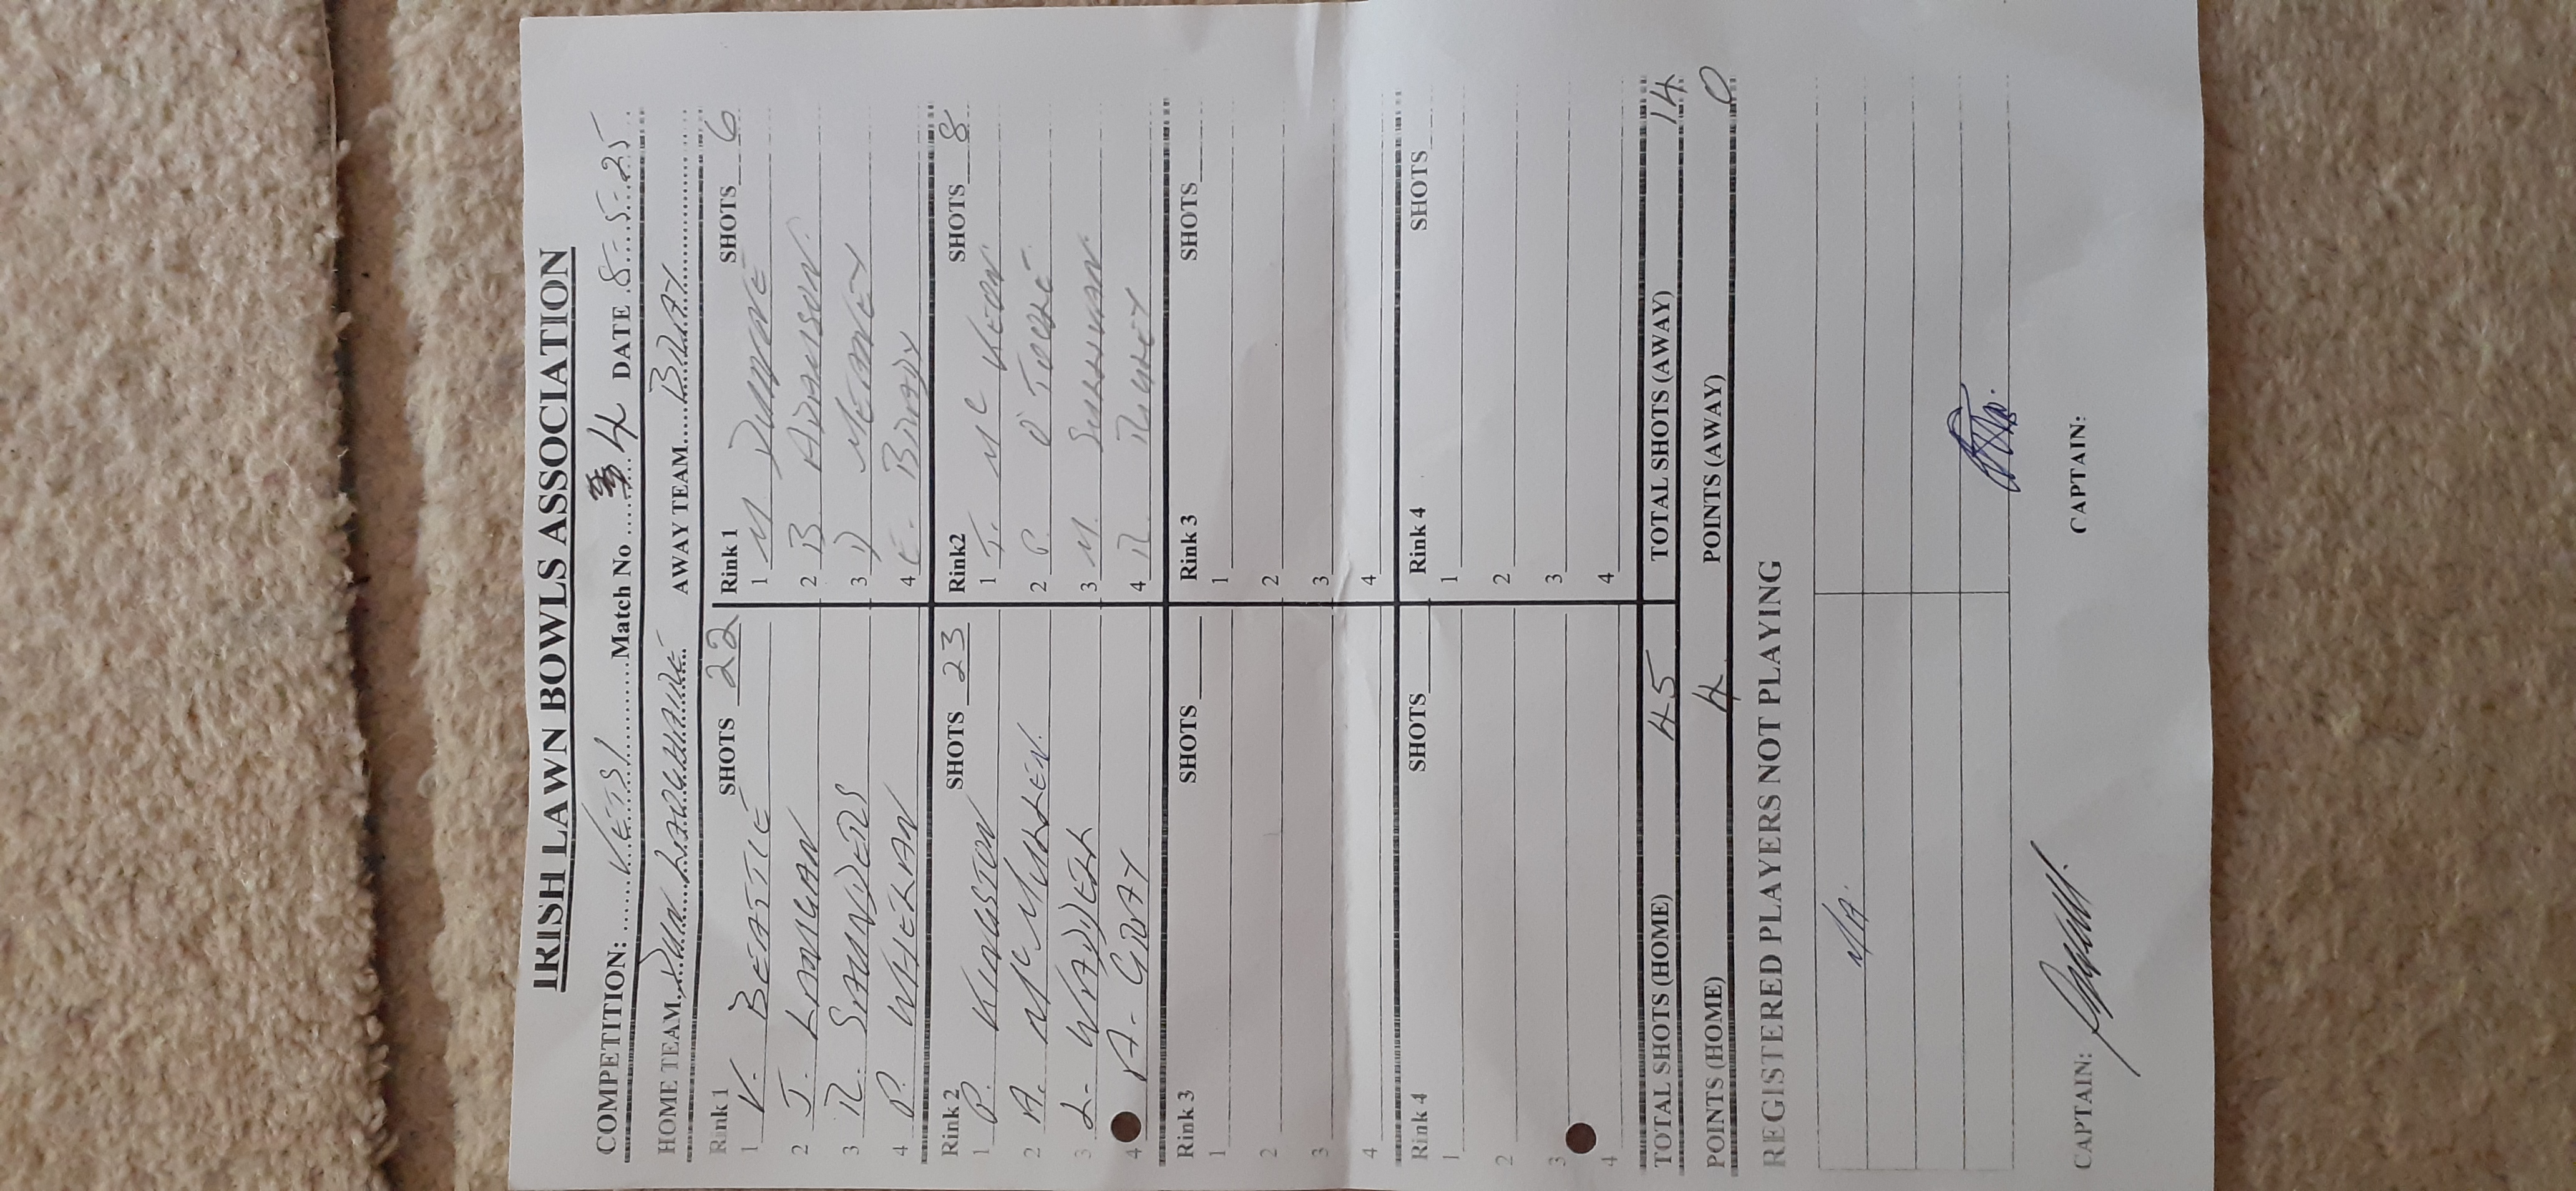 IRISH LAWN BOWLS ASSOCIATION
COMPETITION: VETS 1 Match No 4 DATE 8-5-25
HOME TEAM DUN LAOGHAIRE AWAY TEAM BRAY
Rink 1 SHOTS 22 Rink 1 SHOTS 6
1 V. BEATTIE 1 M DUNNE
2 J. LANIGAN 2 B
3 R. SAUNDERS 3 D
4 P. WHELAN 4 E. BRADY
Rink 2 SHOTS 23 Rink2 SHOTS 8
1 P. KINGSTON 1 T. MC KEON
2 A. MCMULLEN. 2 P. O'TOOLE
3 L. WADDELL 3 M.
4 A- GRAY 4 R.
Rink 3 SHOTS Rink 3 SHOTS
1 1
2 2
3 3
4 4
Rink 4 SHOTS Rink 4 SHOTS
1 1
2 2
3 3
4 4
TOTAL SHOTS (HOME) 45 TOTAL SHOTS (AWAY) 14
POINTS (HOME) 4 POINTS (AWAY) 0
REGISTERED PLAYERS NOT PLAYING
N/A.
CAPTAIN: CAPTAIN: